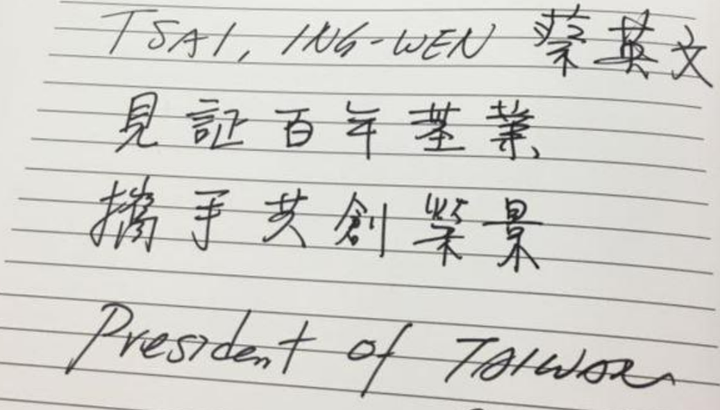 TSAI, ING-WEN 蔡英文
見証百年基業
攜手共創榮景
President of TAIWAN